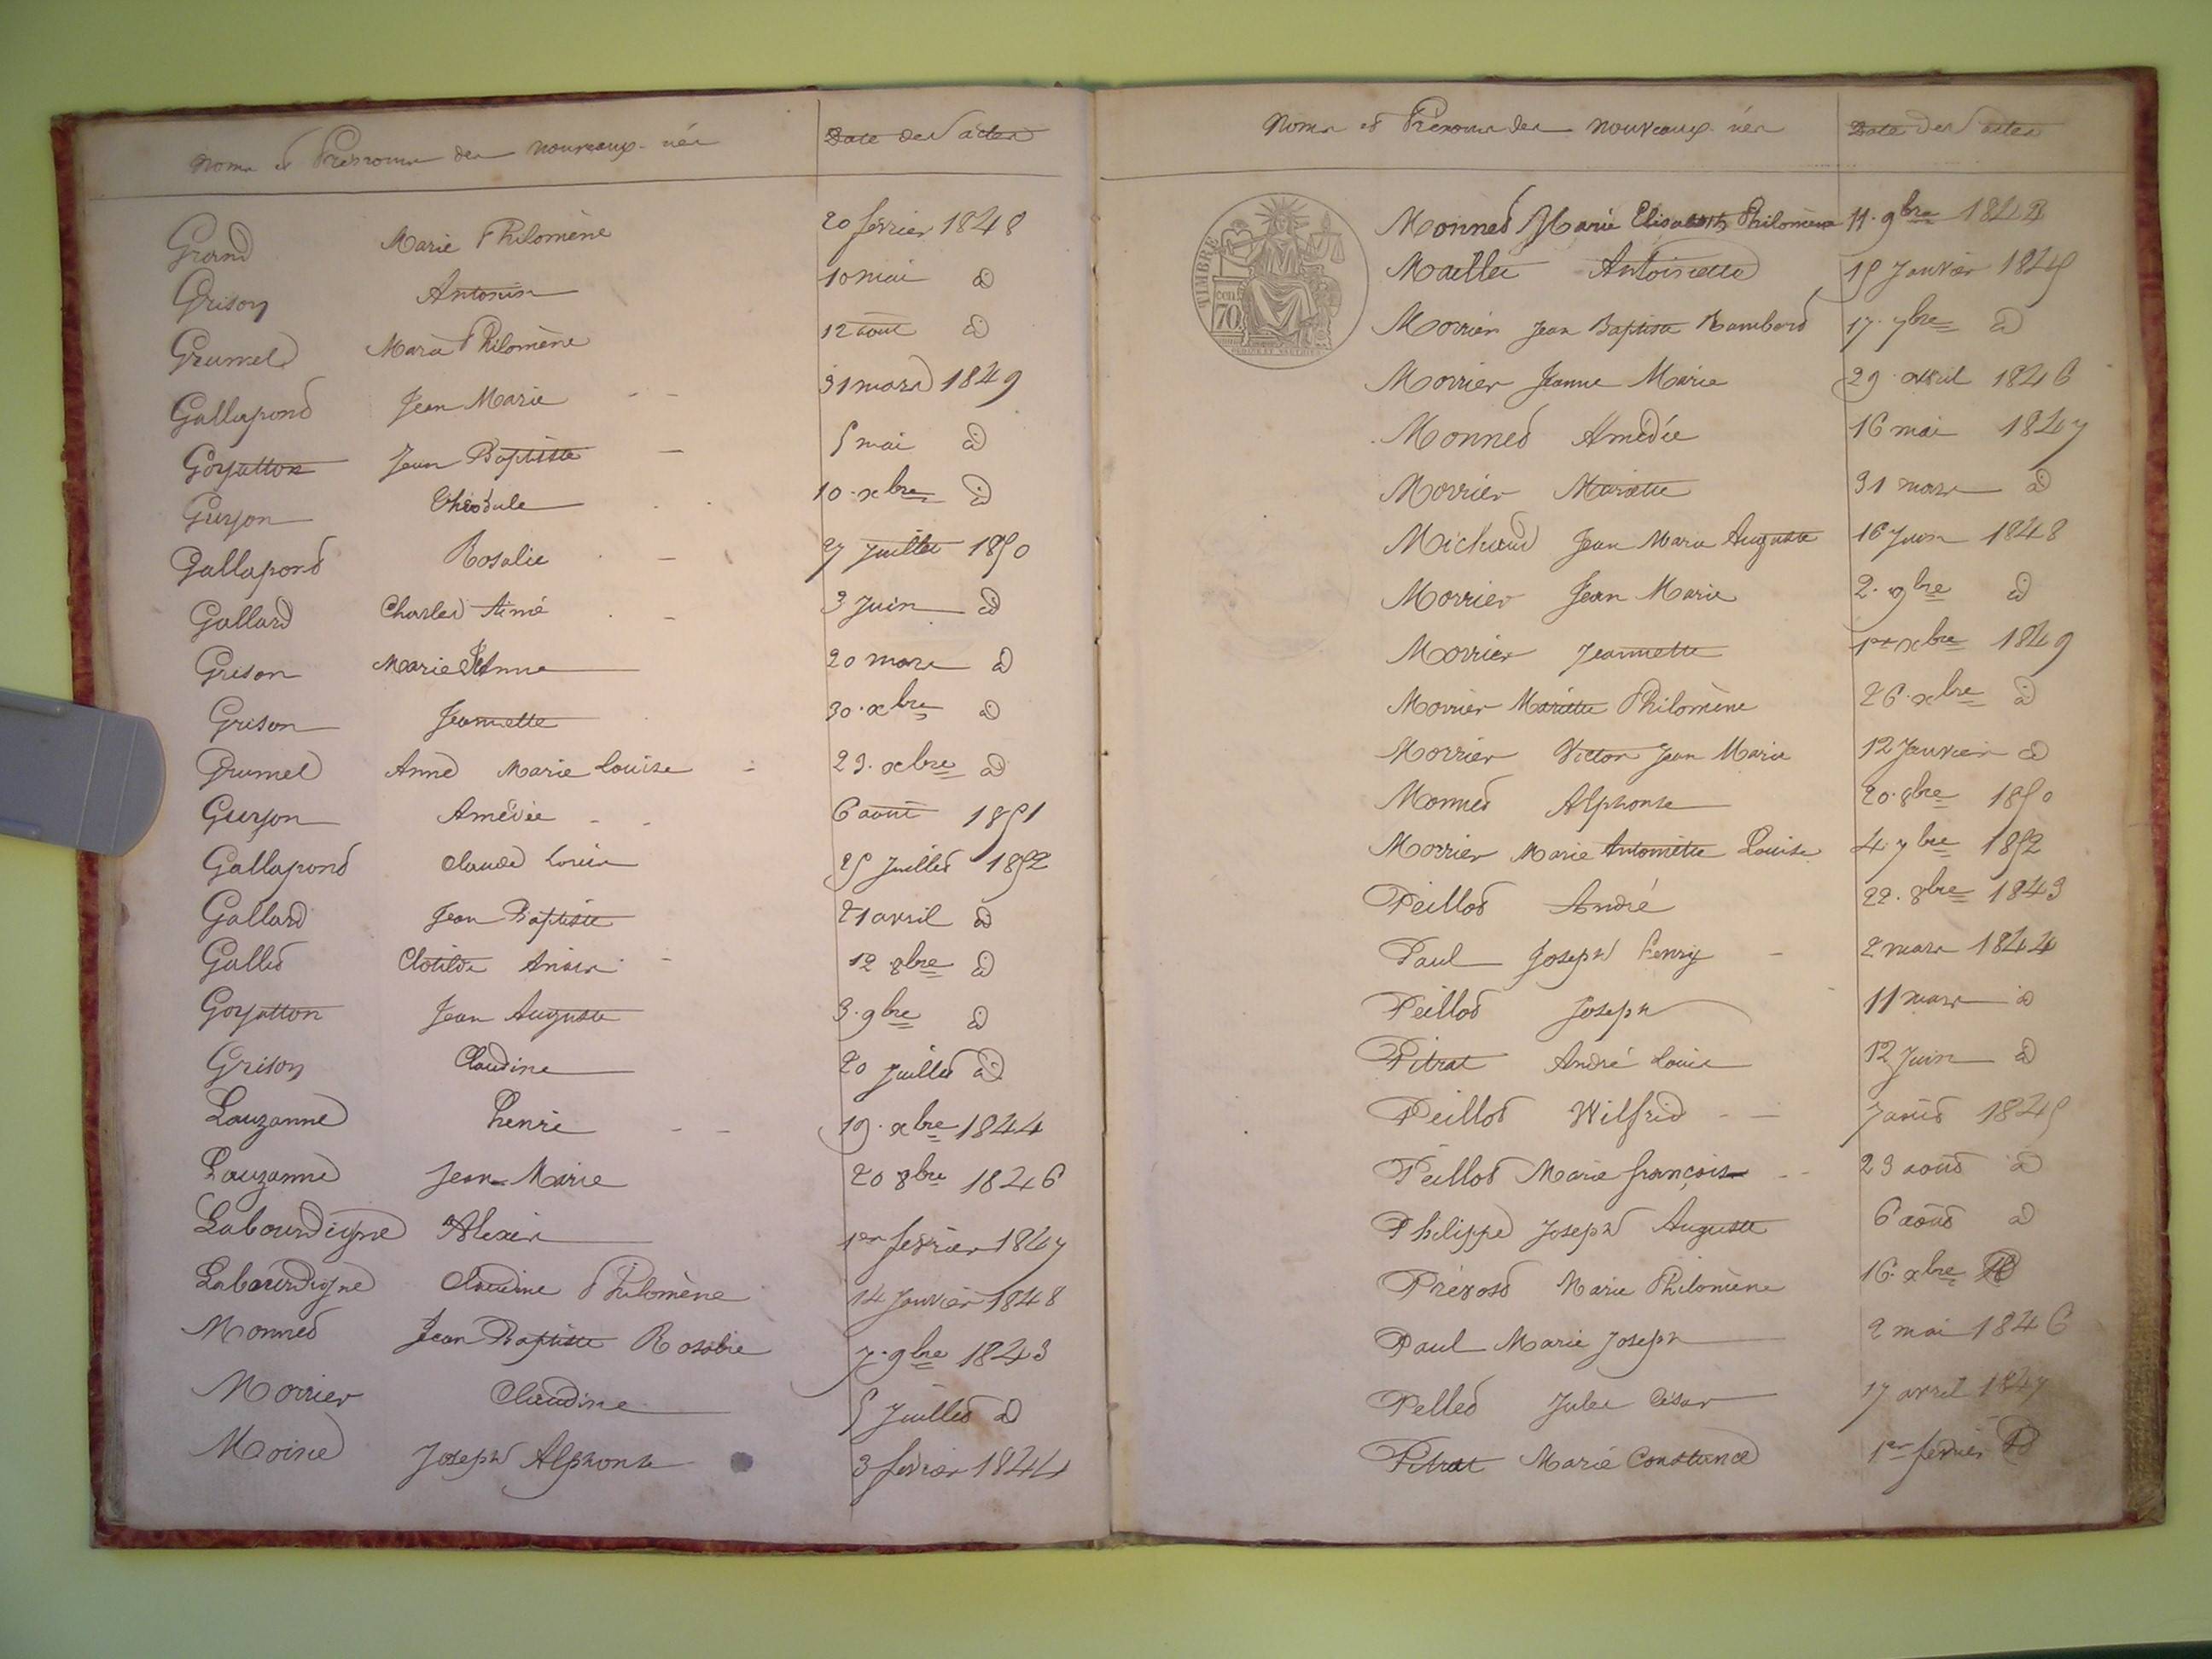 Noms et Prenoms des nouveaux-nés Date des actes
Grand Marie Philomène 20 février 1848
Grison Antonin 10 mai d
Grumel Marie Philomène 12 aout d
Gallapond Jean Marie 31 mars 1849
Goyatton Jean Baptiste 5 mai d
Guyon Théodule 10. xbre d
Gallapond Rosalie 27 Juillet 1850
Gallard Charles Aimé 3 Juin d
Grison Marie Anne 20 mars d
Grison Jeannette 30. xbre d
Grumel Anne Marie Louise 23. xbre d
Guyon Amédée 6 aout 1851
Gallapond Claude Louis 25 Juillet 1852
Gallard Jean Baptiste 21 avril d
Gallet Clotilde Anaïs 12 8bre d
Goyatton Jean Auguste 3. 9bre d
Grison Claudine 20 Juillet d
Lauzanne henri 19. xbre 1844
Lauzanne Jean-Marie 20 8bre 1846
Labourdigne Alexis 1er février 1847
Labourdigne Claudine Philomène 14 Janvier 1848
Monned Jean Baptiste Rosalie 7. 9bre 1843
Morrier Claudine 5 Juillet d
Moine Joseph Alphonse 3 février 1844
Noms et Prenoms des nouveaux-nés Date des actes
TIMBRE
70 cent
Monned Marie Elisabeth Philomène 11. 9bre
Maillet Antoinette 15 Janvier 1845
Morrier Jean Baptiste Rambert 17. 7bre d
Morrier Jeanne Marie 29 avril 1846
Monned Amédée 16 mai 1847
Morrier Mariette 31 mars d
Michaud Jean Marie Auguste 16 Juin 1848
Morrier Jean Marie 2. 9bre d
Morrier Jeannette 1er xbre 1849
Morrier Mariette Philomène 26. xbre d
Morrier Victor Jean Marie 12 Janvier d
Monned Alphonse 20. 8bre 1850
Morrier Marie Antoinette Louise 4. 7bre 1852
Peillod André 22. 8bre 1843
Paul Joseph henry 2 mars 1844
Peillod Joseph 11 mars d
Pitrat André Louis 12 Juin d
Peillod Wilfrid 7 août 1845
Peillod Marie françois 23 août d
Philippe Joseph Auguste 6 août d
Prévost Marie Philomène 16. xbre d
Paul Marie Joseph 2 mai 1846
Pelled Jules César 17 avril 1847
Pitrat Marie Constance 1er février d